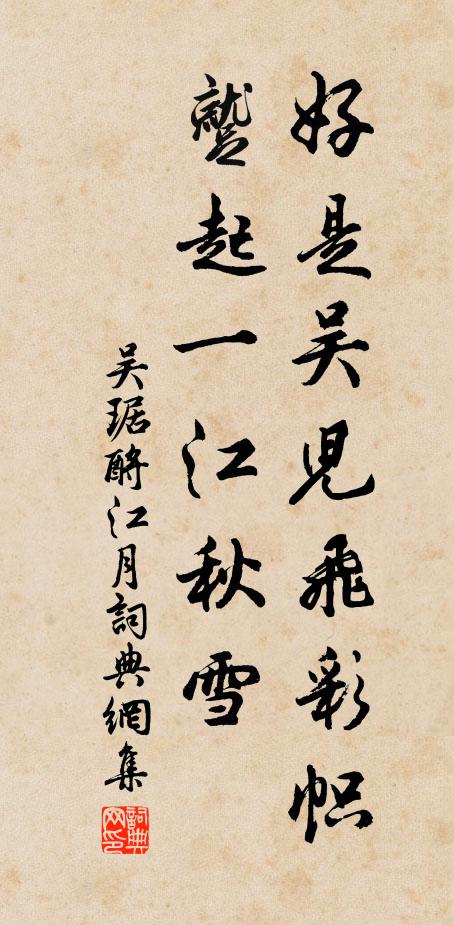 好是吴児飛彩帜
蹙起一江秋雪
吴琚酹江月詞典網集
詞典网印